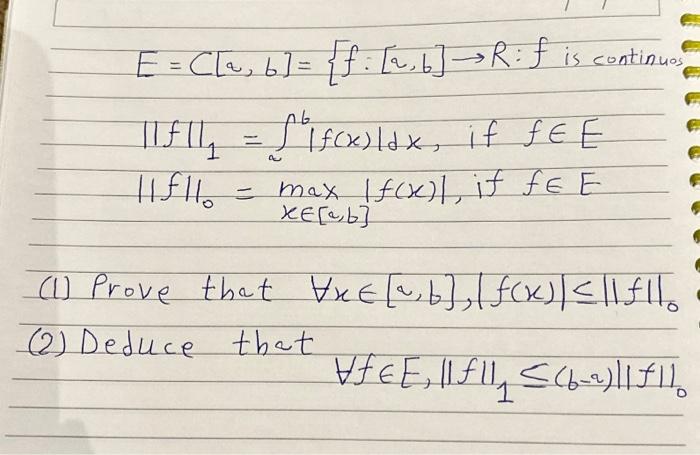 E = C[a, b] = {f : [a, b] → R : f is continuos
||f||₁ = ∫ₐᵇ |f(x)|dx, if f ∈ E
||f||₀ = max |f(x)|, if f ∈ E
x∈[a,b]
(1) Prove that ∀x ∈ [a, b], |f(x)| ≤ ||f||₀
(2) Deduce that
∀f ∈ E, ||f||₁ ≤ (b-a)||f||₀